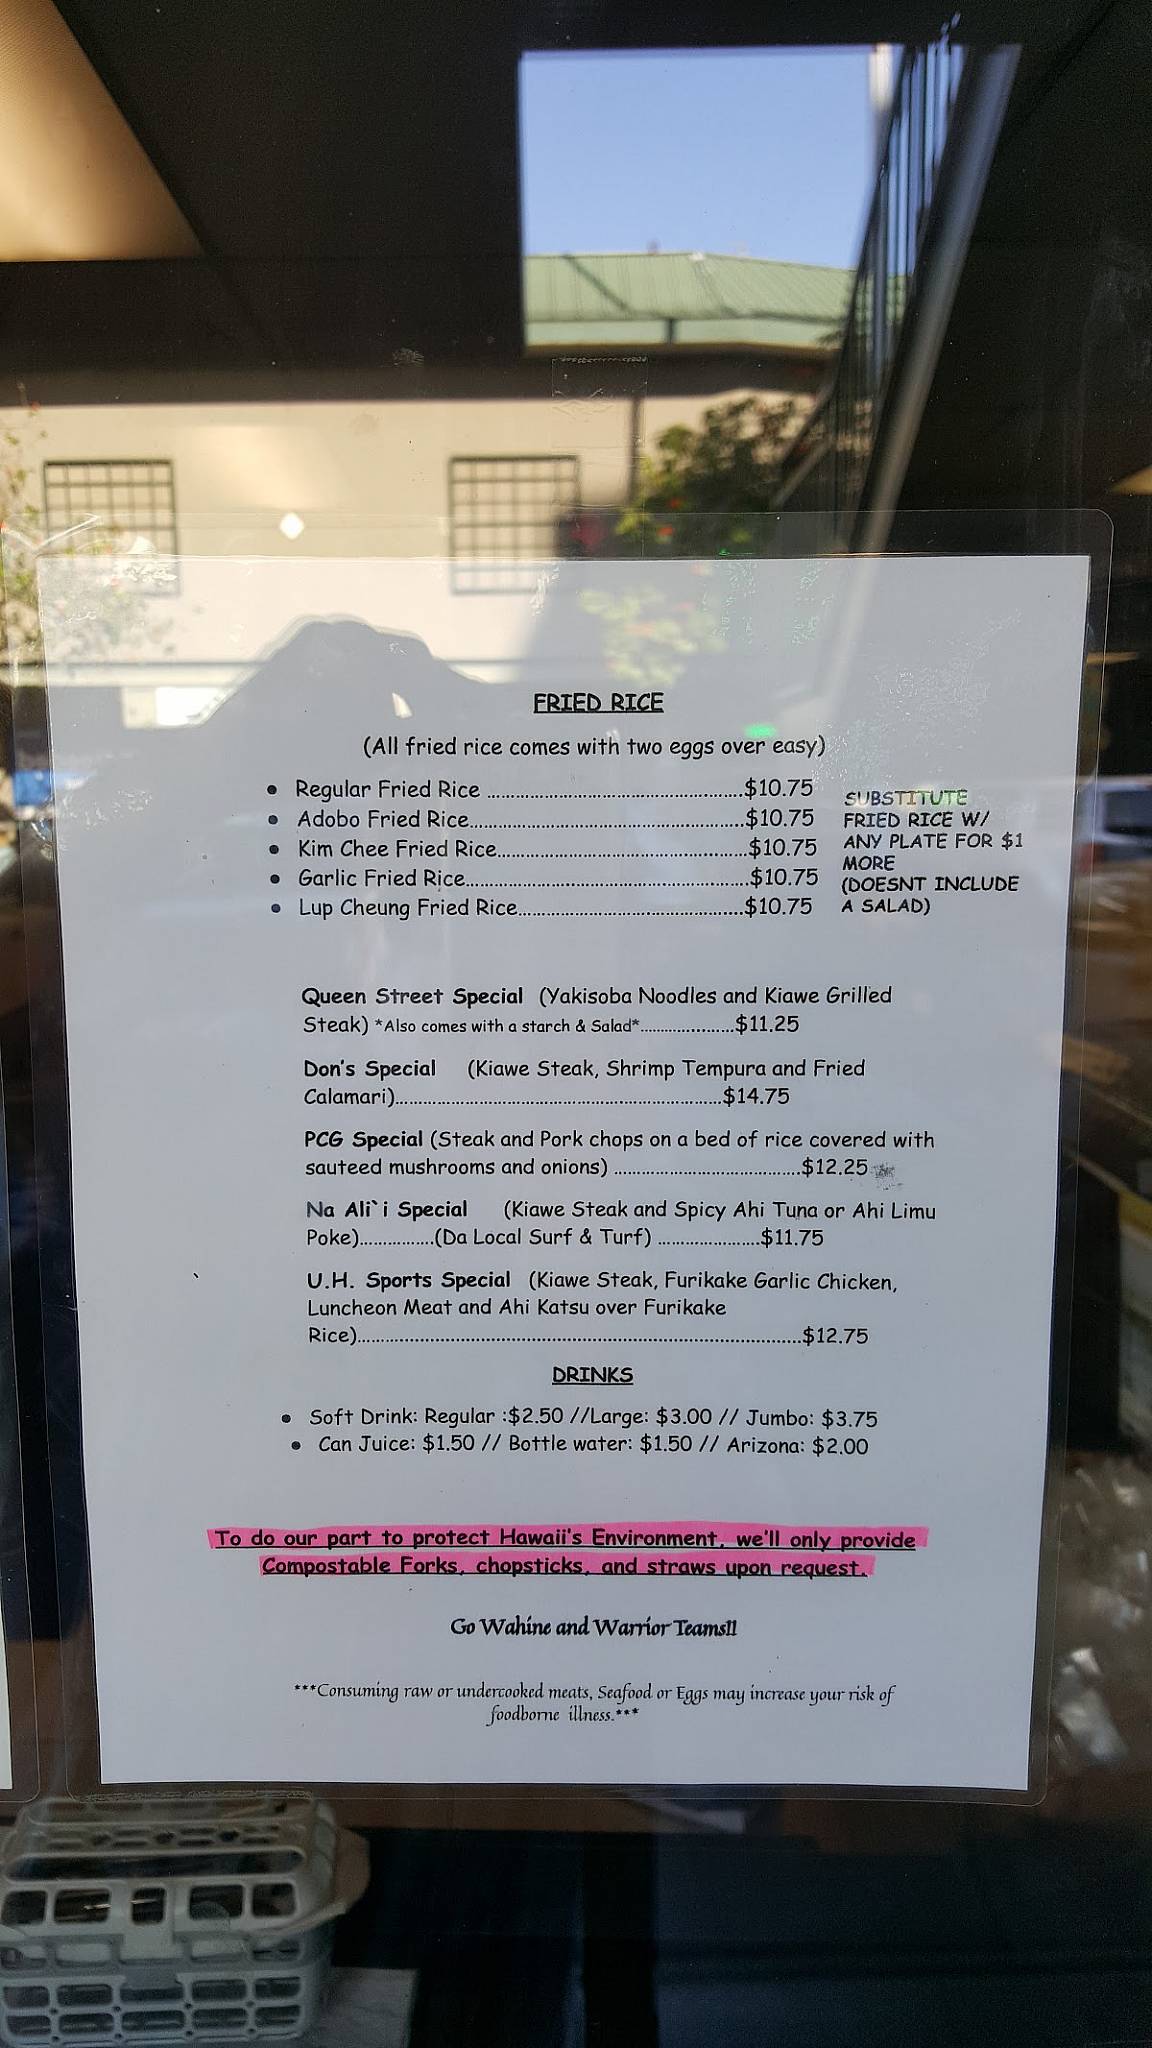 FRIED RICE
(All fried rice comes with two eggs over easy)
• Regular Fried Rice ................................................$10.75
• Adobo Fried Rice....................................................$10.75
• Kim Chee Fried Rice...............................................$10.75
• Garlic Fried Rice.....................................................$10.75
• Lup Cheung Fried Rice...........................................$10.75
SUBSTITUTE
FRIED RICE W/
ANY PLATE FOR $1
MORE
(DOESNT INCLUDE
A SALAD)
Queen Street Special (Yakisoba Noodles and Kiawe Grilled
Steak) *Also comes with a starch & Salad*......................$11.25
Don's Special (Kiawe Steak, Shrimp Tempura and Fried
Calamari)..............................................................$14.75
PCG Special (Steak and Pork chops on a bed of rice covered with
sauteed mushrooms and onions) ....................................$12.25
Na Ali`i Special (Kiawe Steak and Spicy Ahi Tuna or Ahi Limu
Poke)................(Da Local Surf & Turf) ......................$11.75
U.H. Sports Special (Kiawe Steak, Furikake Garlic Chicken,
Luncheon Meat and Ahi Katsu over Furikake
Rice).....................................................................................$12.75
DRINKS
• Soft Drink: Regular :$2.50 //Large: $3.00 // Jumbo: $3.75
• Can Juice: $1.50 // Bottle water: $1.50 // Arizona: $2.00
To do our part to protect Hawaii's Environment, we'll only provide
Compostable Forks, chopsticks, and straws upon request.
Go Wahine and Warrior Teams!!
***Consuming raw or undercooked meats, Seafood or Eggs may increase your risk of
foodborne illness.***